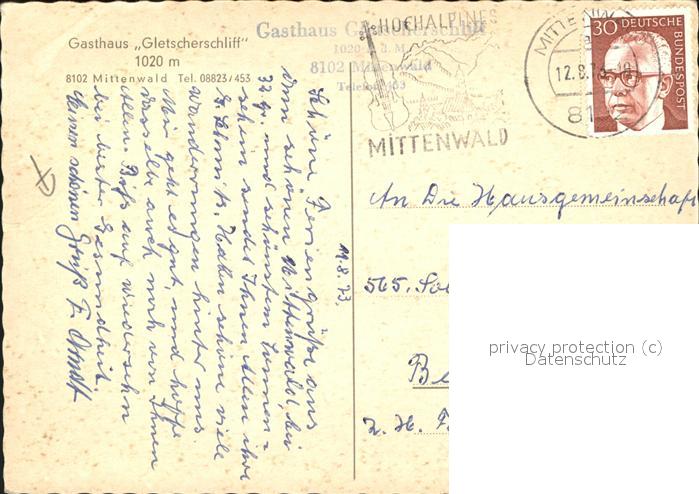 Gasthaus „Gletscherschliff"
1020 m
8102 Mittenwald Tel. 08823/453
Gasthaus Gletscherschliff
1020 ü. d. M.
8102 Mittenwald
Telefon 453
HOCHALPINES
MITTENWALD
MITTENWALD
12.8.73-18
81
30 DEUTSCHE
BUNDESPOST
11.8.73.
Schöne Feriengrüße aus
dem schönen Mittenwald, bei
32 gr. und schönstem Sonnen=
schein sendet Ihnen Allen ihre
Haben schöne viele
Wanderungen hinter uns.
Mir geht es gut, und hoffe
dasselbe auch noch von Ihnen
Allen. Biß auf wiedersehn
bei bester Gesundheit.
schönen Gruß F.
An Die Hausgemeinschaft
565. So
Be
z. H. F
privacy protection (c)
Datenschutz